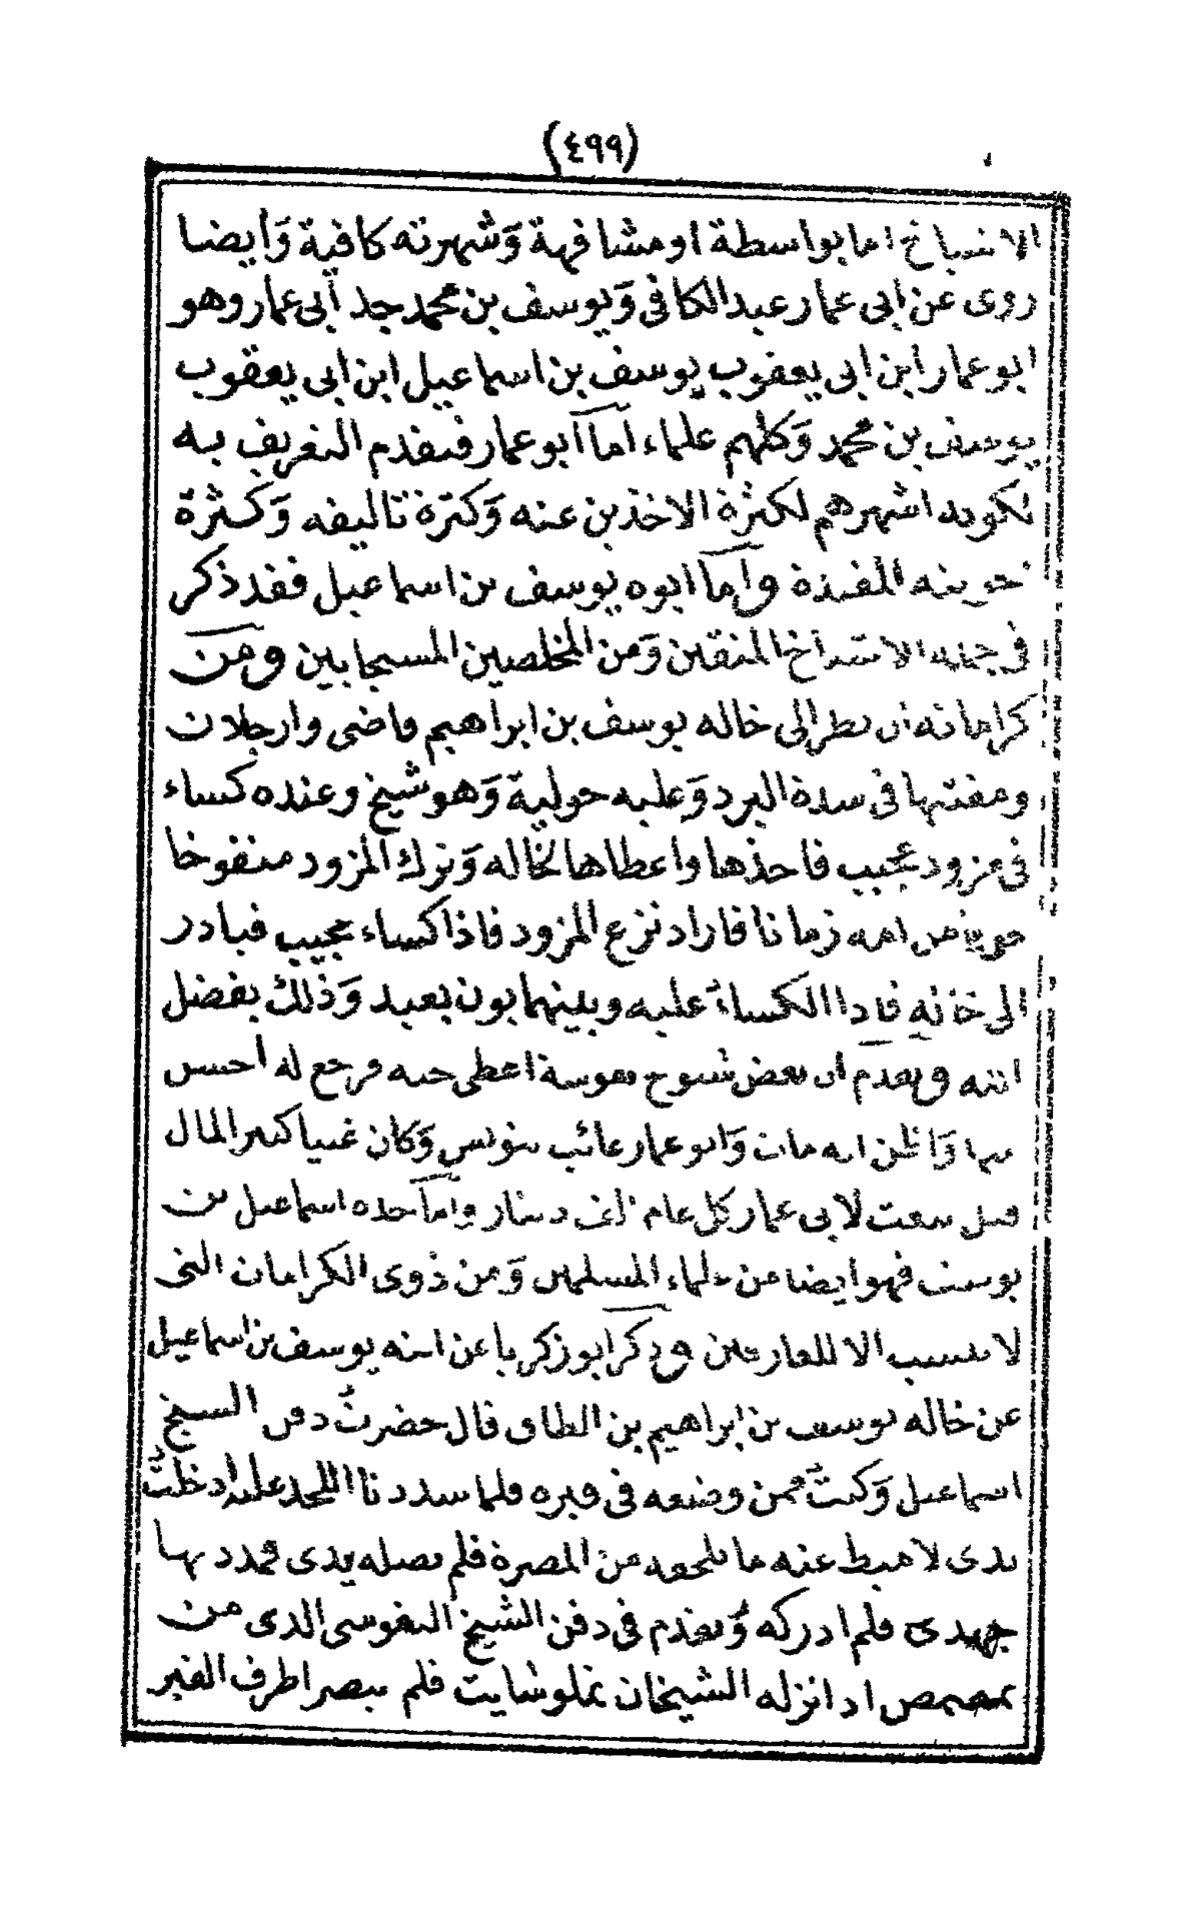 (٤٩٩)
الاشياخ اما بواسطة او مشافهة وَشهرته كافية وَأيضا
روى عن ابى عمار عبد الكافى وَيوسف بن محمد جد أبى عمار وهو
ابو عمار ابن ابى يعقوب يوسف بن اسماعيل ابن ابى يعقوب
يوسف بن محمد وَكلهم علماء أما أبو عمار فتقدم التعريف به
لكونه اشهرهم لكثرة الاخذين عنه وَكثرة تاليفه وَكثرة
المفيدة وأما ابوه يوسف بن اسماعيل فقد ذكر
فى جملة الاشياخ المتقين وَمن المخلصين المستجابين ومن
كراماته ان نظر الى خاله يوسف بن ابراهيم قاضى وارجلان
ومفتيها فى شدة البرد وَعليه حولية وَهو شيخ وعنده كساء
فى مزود عجيب فاخذها واعطاها لخاله وَترك المزود منفوخا
خوفا من امه زمانا فاراد نزع المزود فاذا كساء عجيب فبادر
الى خاله فاذا الكساء عليه وبينهما بون بعيد وَذلك بفضل
الله وتقدم ان بعض شيوخ نفوسة اعطى جبه فرجع له احسن
منها وَاظن انه مات وَابو عمار غائب بتونس وَكان غنيا كثير المال
قيل بعث لابى عمار كل عام الف دينار وأما جده اسماعيل بن
يوسف فهو ايضا من علماء المسلمين وَمن ذوى الكرامات التى
لا تنسب الا للعارفين وذكر ابو زكرياء عن ابنه يوسف بن اسماعيل
عن خاله يوسف بن ابراهيم بن الطاى قال حضرتُ دفن الشيخ
اسماعيل وَكنتُ ممن وضعه فى قبره فلما سددنا اللحد عليه ادخلتُ
يدى لاميط عنه ما يلحقه من المضرة فلم تصله يدى فمددتها
جهدى فلم ادركه وَتقدم فى دفن الشيخ النفوسى الذى من
تمصمص اذ انزله الشيخان تملوشايت فلم يبصرا طرف القبر